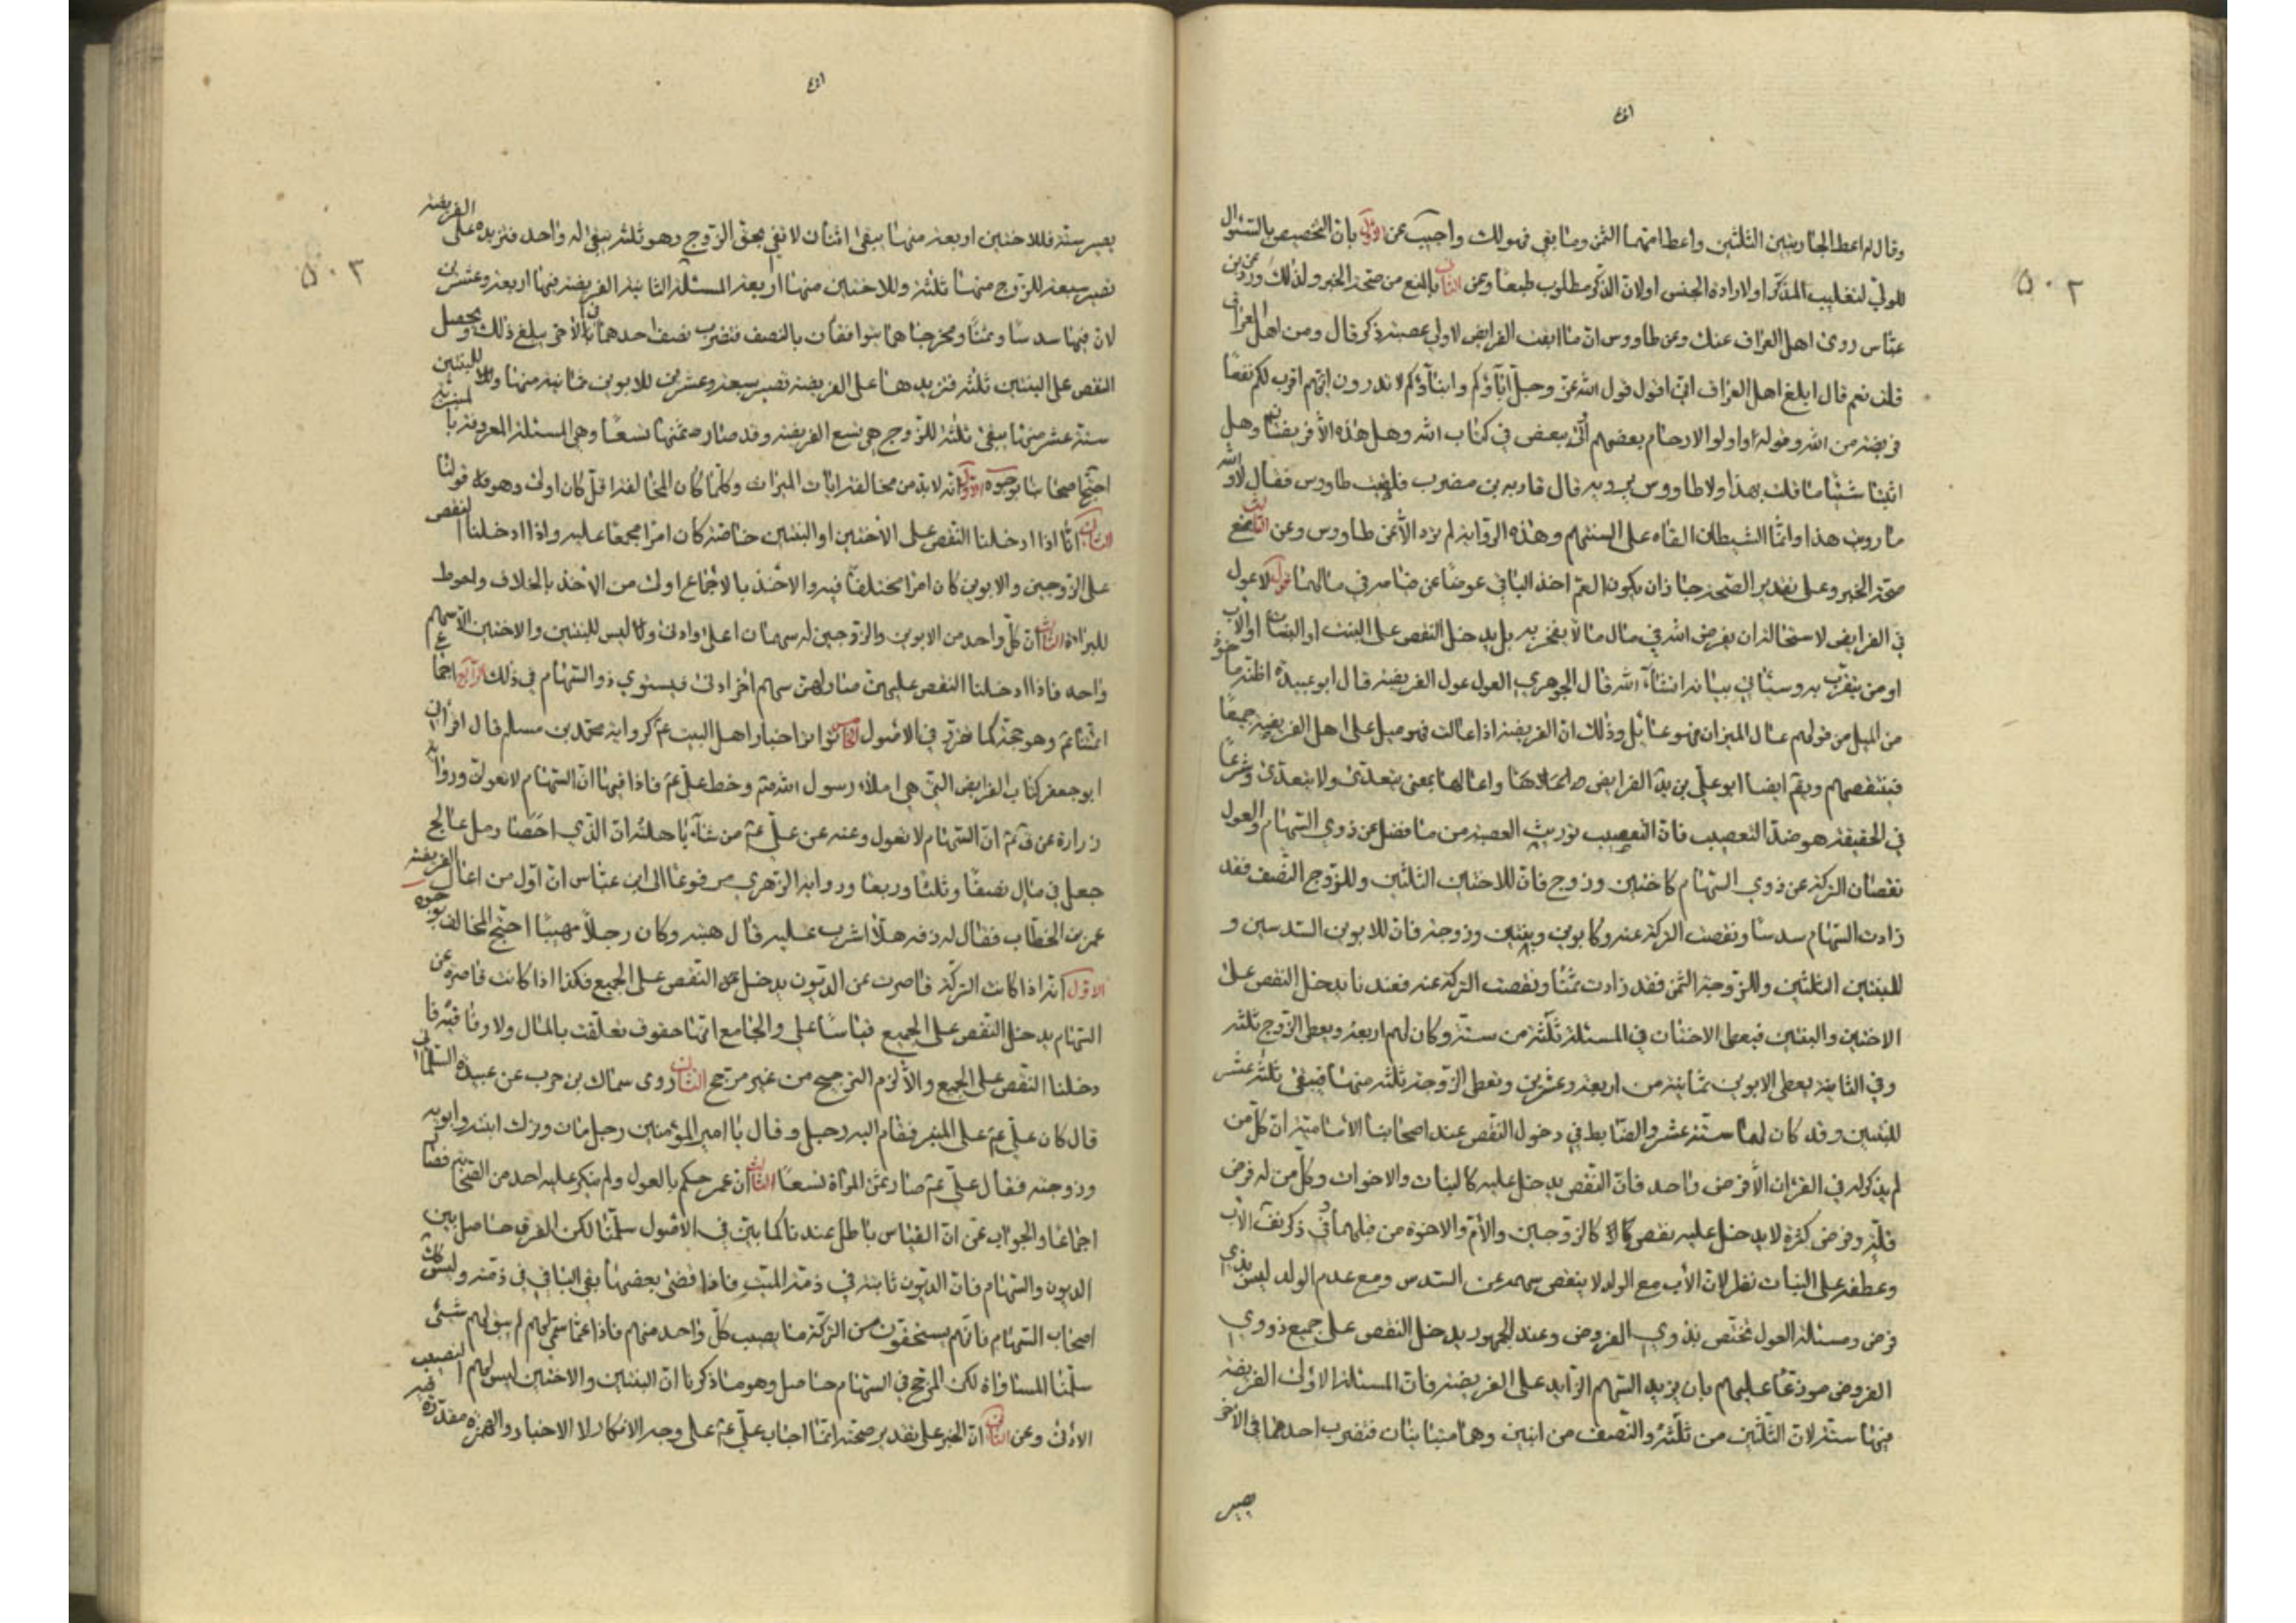 وقال له اعط الجاريتين الثلثين واعط امهما الثمن وما بقي فهو لك واجيب عن الاول بان التخصيص بالسئوال
للولي لتغليب المذكر او لارادة الجنس او لان الذكر مطلوب طبعًا وعن الثاني بالمنع من صحة الخبر ولذلك ورد عن ابن
عباس روى اهل العراق عنك وعن طاووس ان ما ابقت الفرايض لاولي عصبة ذكر قال ومن اهل العراق
قلت نعم قال ابلغ اهل العراق اني اقول قول الله عز وجل آباؤكم وابناؤكم لا تدرون ايهم اقرب لكم نفعًا
فريضة من الله وقوله واولو الارحام بعضهم اولى ببعض في كتاب الله وهل هذه الا فريضتان وهل
ابقتا شيئًا ما قلت بهذا ولا طاووس يرويه قال قاربة بن مضرب فلقيت طاوس فقال لا والله
ما رويت هذا وانما الشيطان القاه على السنتهم وهذه الرواية لم ترد الا عن طاووس وعن الثالث بمنع
صحة الخبر وعلى تقدير الصحة جاز ان يكون العم اخذ الباقي عوضًا عن ما صرفي مالهما قوله لا عول
في الفرايض لاستحالة ان يفرض الله في مال ما لا يفي به بل يدخل النقص على البنت او البنات او الاب
او من يتقرب به وسيأتي بيانه انشاء الله قال الجوهري العول عول الفريضة قال ابو عبيدة اظنه ماخوذًا
من الميل من قولهم عال الميزان فهو عائل وذلك ان الفريضة اذا عالت فهو ميل على اهل الفريضة جميعًا
فينتقصهم ويقم ايضا ابو علي بن يد الفرايض واعالها بمعنى يتعدى ولا يتعدى وشرعًا
في الحقيقة هو ضد التعصيب فان التعصيب توريث العصبة من ما فضل عن ذوي السهام والعول
نقصان التركة عن ذوي السهام كاختين وزوج فان للاختين الثلثين وللزوج النصف فقد
زادت السهام سدسًا ونقصت التركة عنه وكابوين وبنتين وزوجة فان للابوين السدسين و
للبنتين الثلثين وللزوجة الثمن فقد زادت ثمنًا ونقصت التركة عنه فعندنا يدخل النقص على
الاختين والبنتين فيعطى الاختان في المسئلة ثلثة من ستة وكان لهم اربعة ويعطى الزوج ثلثة
وفي الثانية يعطى الابوين ثمانية من اربعة وعشرين وتعطى الزوجة ثلثة منها فيبقى ثلثة عشر
للبنتين وقد كان لهما ستة عشر والضابط في دخول النقص عند اصحابنا الامامية ان كل من
لم يذكر له في القران الا فرض واحد فان النقص يدخل عليه كالبنات والاخوات وكل من له فرض
قلة وفرض كثرة لا يدخل عليه نقص كالزوجين والام والاخوة من قبلهما في ذكر نف الاب
وعطفه على البنات نظر لان الاب مع الولد لا ينقص سهمه عن السدس ومع عدم الولد ليس بذي
فرض ومسئلة العول تختص بذوي الفروض وعند الجمهور يدخل النقص على جميع ذووي
الفروض موزعًا عليهم بان يزيد السهم الزايد على الفريضة فان المسئلة الاولى الفريضة
فيها ستة لان الثلثين من ثلثة والنصف من اثنين وهما متباينان فتضرب احدهما في الاخر
يصير
٥٠٢
يصير ستة فللاختين اربعة منها يبقى اثنان لا تفي بحق الزوج وهو ثلثة يبقى له واحد فنزيده على الفريضة
تصير سبعة للزوج منها ثلثة وللاختين منها اربعة المسئلة الثانية الفريضة فيها اربعة وعشرين
لان فيها سدسًا وثمنًا ومخرجاهما يتوافقان بالنصف فتضرب نصف احدهما في الاخر يبلغ ذلك ويحصل
النقص على البنتين ثلثة فنزيدها على الفريضة تصير سبعة وعشرين للابوين ثمانية منها وللبنتين
ستة عشر منها يبقى ثلثة للزوج هي تسع الفريضة وقد صار ثمنها تسعًا وهي المسئلة المعروفة بالمنبرية
احتج اصحابنا بوجوه الاول انه لا بد من مخالفة ايات الميراث وكلما كان المخالفة اقل كان اولى وهو قولنا
الثاني انا اذا ادخلنا النقص على الاختين او البنتين خاصة كان امرًا مجمعًا عليه واذا ادخلنا النقص
على الزوجين والابوين كان امرًا مختلفًا فيه والاخذ بالاجماع اولى من الاخذ بالخلاف واحوط
للبراءة الثالث ان كل واحد من الابوين والزوجين له سهمان اعلى وادنى وليس للبنتين والاختين الا سهم
واحد فاذا ادخلنا النقص عليهن صار لهن سهم اخر ادنى فيستوي ذو السهام في ذلك الرابع اجماع
ائمتنا عم وهو حجة كما تقرر في الاصول الخامس تواتر اخبار اهل البيت عم كرواية محمد بن مسلم قال اقراني
ابو جعفر كتاب الفرايض التي هي املاء رسول الله صم وخط علي عم فاذا فيها ان السهام لا تعول ورواية
زرارة عن عم ان السهام لا تعول وعنه عن علي عم من شاء باهلته ان الذي احصا رمل عالج
جعل في مال نصفًا وثلثًا وربعا ورواية الزهري مرفوعًا الى ابن عباس ان اول من اعال الفريضة
عمر بن الخطاب فقال له زفر هلا اشرت عليه قال هبته وكان رجلًا مهيبًا احتج المخالف بوجوه
الاول انه اذا كانت التركة قاصرت عن الديون يدخل النقص على الجميع فكذا اذا كانت قاصرة عن
السهام يدخل النقص على الجميع قياسًا على والجامع انها حقوق تعلقت بالمال ولا وفا
دخلنا النقص على الجميع والا لزم الترجيح من غير مرجح الثاني روى سماك بن حرب عن عبيدة السلماني
قال كان علي عم على المنبر فقام اليه رجل وقال يا امير المؤمنين رجل مات وترك ابنته وابويه
وزوجته فقال علي عم صار ثمن المراة تسعًا الثالث ان عمر حكم بالعول ولم ينكر عليه احد من الصحابة فصار
اجماعًا والجواب عن ان القياس باطل عندنا كما بين في الاصول سلمنا لكن الفرق حاصل بين
الديون والسهام فان الديون ثابتة في ذمة الميت فاذا قضى بعضها بقي الباقي في ذمته وليس كذلك
اصحاب السهام فانهم يستحقون من التركة ما يصيب كل واحد منهم فاذا سمي لهم لم يبق لهم شيئ
سلمنا المساواة لكن المرجح في السهام حاصل وهو ما ذكرنا ان البنتين والاختين ليس لهم النصيب
الادنى وعن الثاني ان الخبر على تقدير صحته انما اجاب علي عم على وجه الانكار لا الاخبار والهمزة مقدرة فيه
٥٠٣